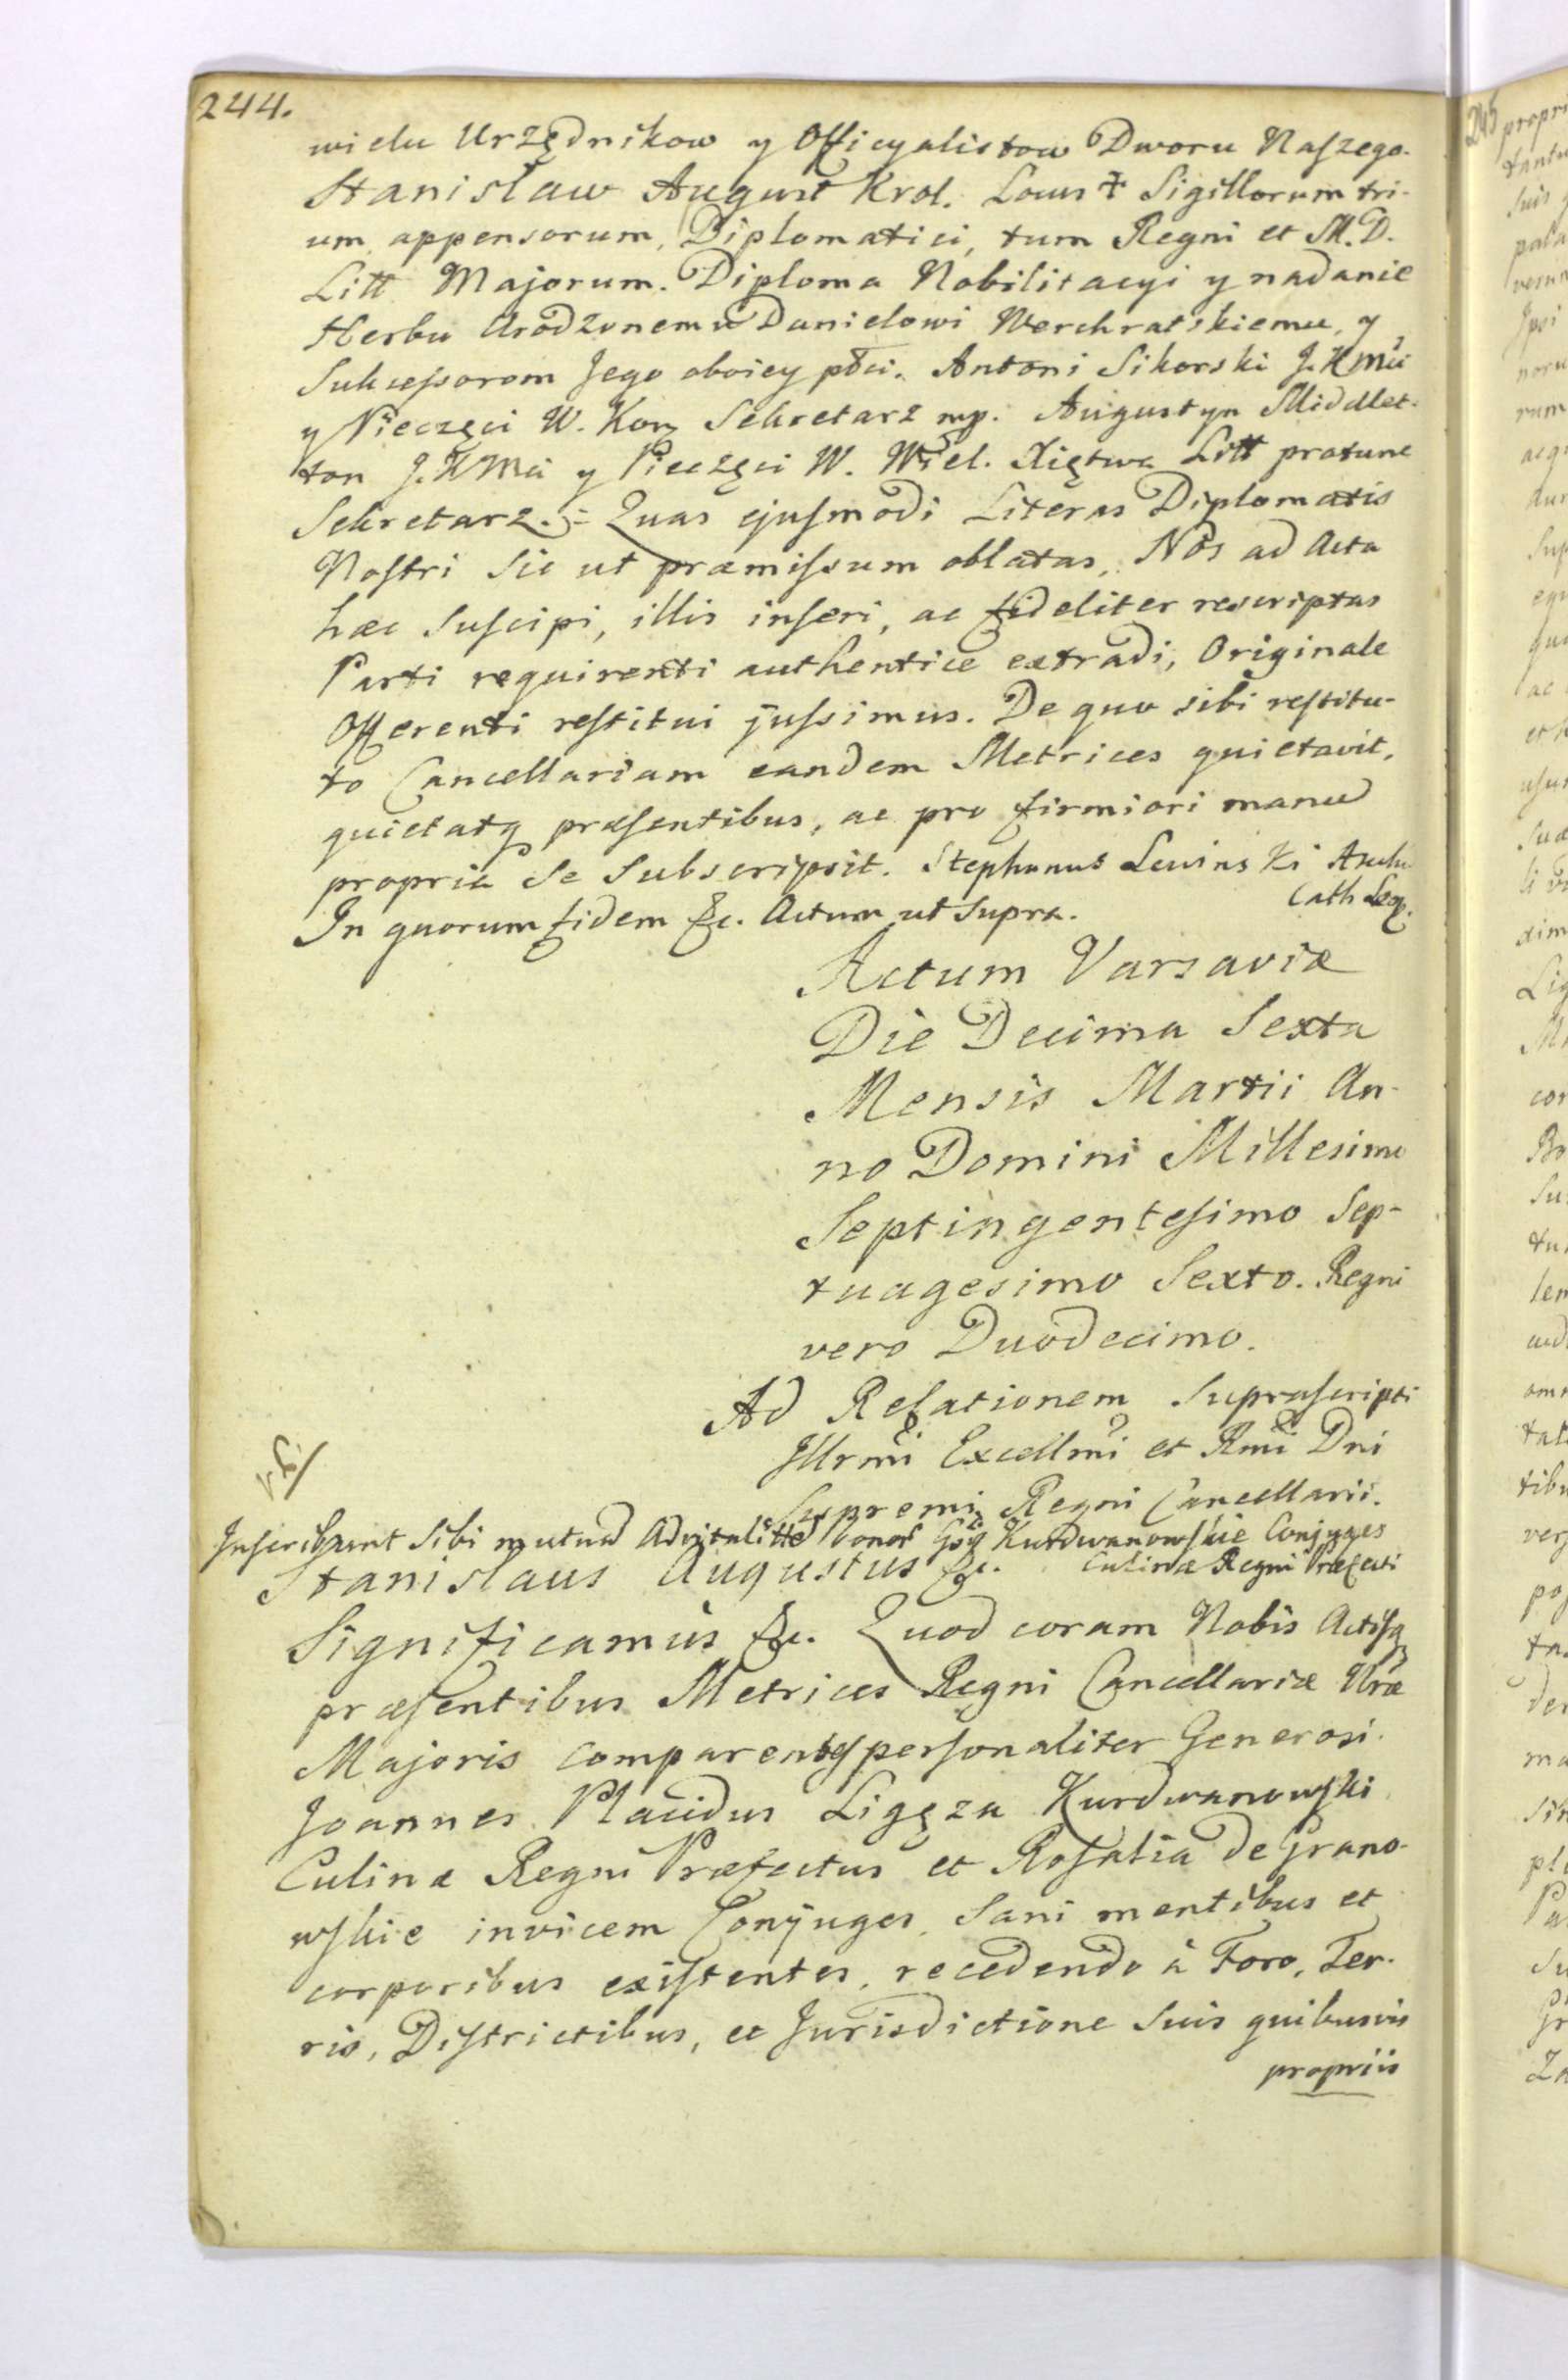 244.
wielu Urzędnikow y Officyalistow Dworu Naszego.
Stanisław August Krol. Locus ✝ Sigillorum tri-
um appensorum, Diplomatici, tum Regni et M. D.
Litt Majorum. Diploma Nobilitacyi y nadanie
Herbu Urodzonemu Danielowi Werchratskiemu, y
Sukcessorom Jego oboiey płci. Antoni Sikorski J. K Mći
y Pieczęci W. Kor Sekretarz mp. Augustyn Middlet-
ton J. K Mći y Pieczęci W. Wiel. Xięstwa Litt protunc
Sekretarz. Quas ejusmodi Literas Diplomatis
Nostri Sic ut præmissum oblatas, Nos ad Acta
hæc Suscipi, illis inseri, ac fideliter rescriptas
Parti requirenti authentice extradi, Originale
Offerenti restitui jussimus. De quo sibi restitu-
to Cancellariam eandem Metrices quietavit,
quietatq præsentibus, ac pro firmiori manu
propria Se Subscripsit. Stephanus Lewinski
Cath
In quorum fidem &c. Actum ut Supra.
Actum Varsaviæ
Die Decima Sexta
Mensis Martii An-
no Domini Millesimo
Septingentesimo Sep-
tuagesimo Sexto. Regni
vero Duodecimo.
Ad Relationem Suprascripti
Illrmi Excellmi et Rmi Dni
Supremi Regni Cancellarii.
Inscribunt Sibi mutuo Advitalitte bonor Gsi Kurdwanowskie Conjuges
Culinæ Regni Præfecti
Stanislaus Augustus &c.
Significamus &c. Quod coram Nobis Actisq
præsentibus Metrices Regni Cancellariæ Nræ
Majoris Comparentes personaliter Generosi
Joannes Placidus Ligęza Kurdwanowski
Culinæ Regni Præfectus et Rosalia de Grano-
wskie invicem Conjuges, Sani mentibus et
corporibus existentes, recedendo à Foro, Ter-
ris, Districtibus, et Jurisdictione Suis quibusvis
propriis